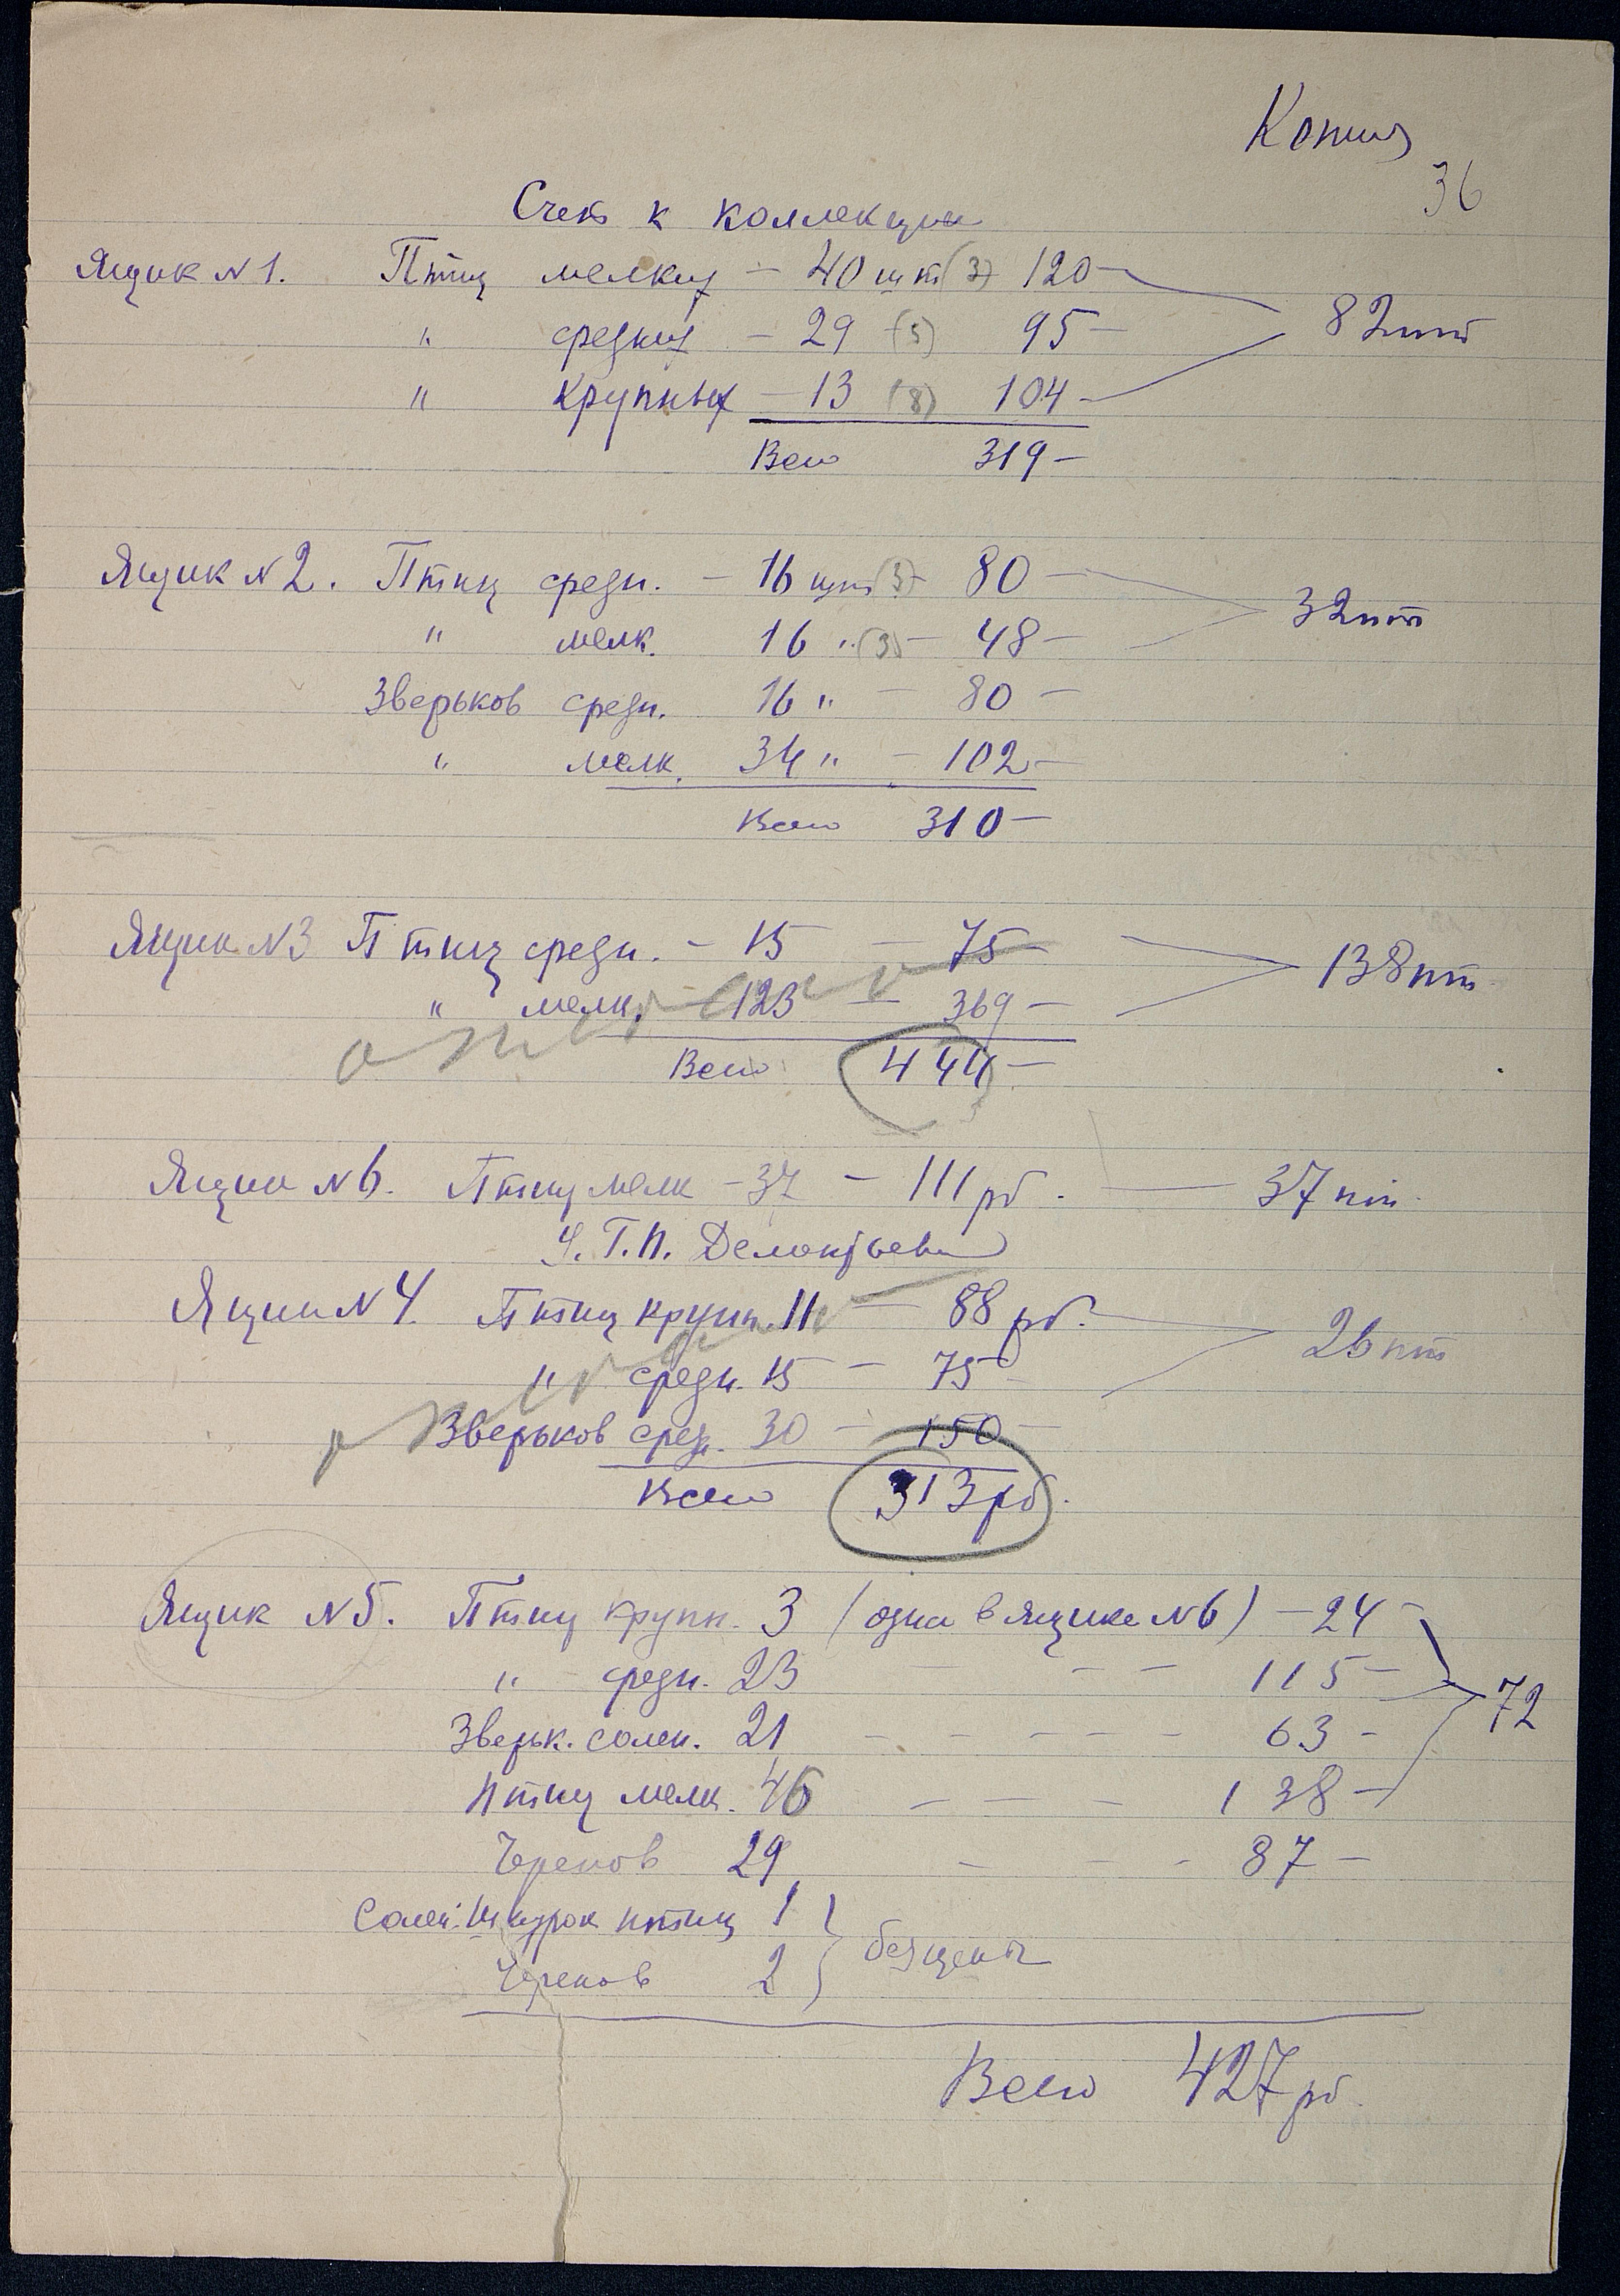 Копия
36
Счет к коллекции
Ящик N 1. Птиц мелких — 40 шт (3) 120 —
" средних — 29 (5) 95 — 82 шт
" крупных — 13 (8) 104 —
Всего 319 —
Ящик N 2. Птиц средн. — 16 шт (5) 80 —
32 пт
" мелк. 16 " (3) — 48 —
Зверьков средн. 16 " — 80 —
" мелк. 34 " — 102 —
Всего 310 —
Ящик N 3 Птиц средн. — 15 — 75 —
138 пт
" мелк. — 123 — 369 —
отправлено
Всего 444 —
Ящик N 6. Птиц мелк — 37 — 111 рб. — 37 пт.
Г.П. Дементьеву
Ящик N 4. Птиц крупн. 11 — 88 рб.
26 пт
" средн. 15 — 75 —
Зверьков сред. 30 — 150 —
Всего 313 рб.
Ящик N 5. Птиц крупн. 3 (одна в ящике N 6) — 24 —
" средн. 23 — — — 115 —
72
Зверьк. солен. 21 — — — — — 63 —
Птиц мелк. 46 — — — 138 —
Черепов 29 — — — 87 —
Солен. шкурок птиц 1 } без цены
Черепов 2
Всего 427 рб.